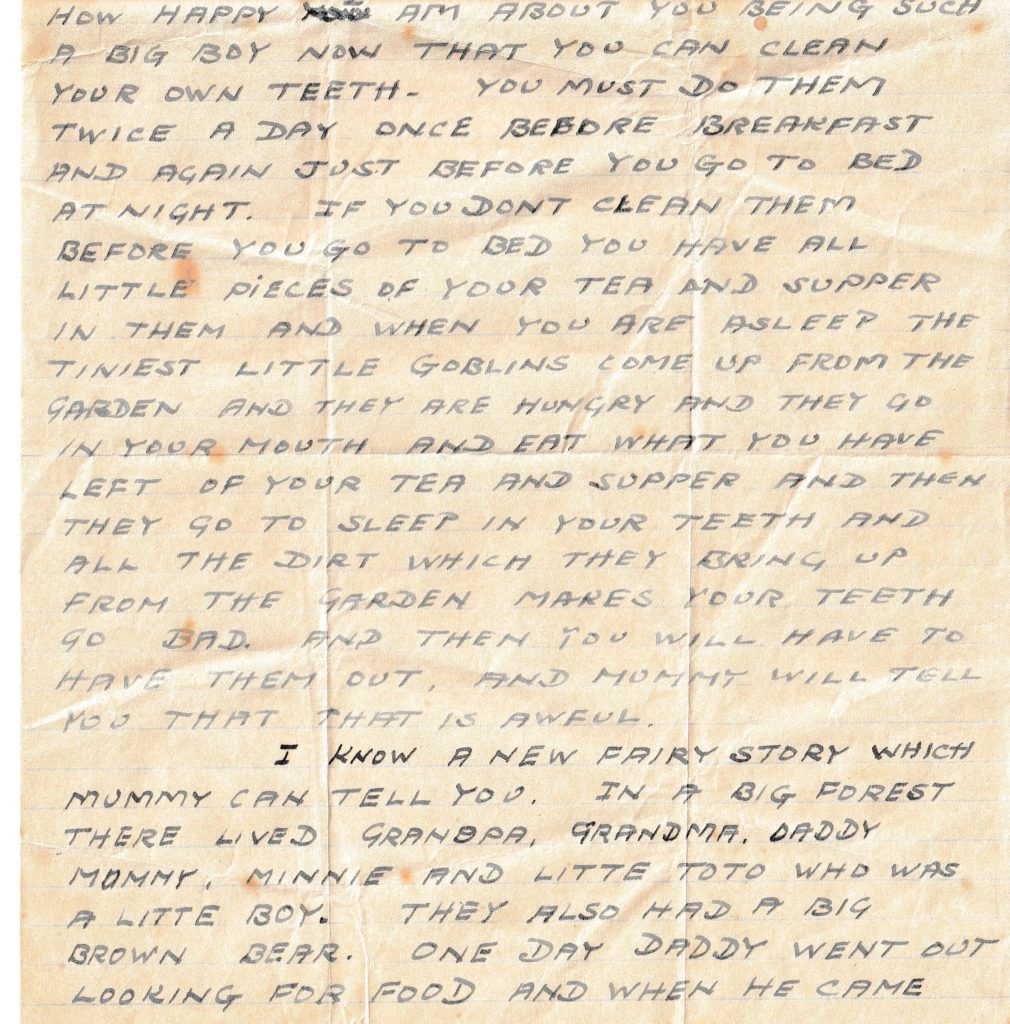 HOW HAPPY I AM ABOUT YOU BEING SUCH
A BIG BOY NOW THAT YOU CAN CLEAN
YOUR OWN TEETH- YOU MUST DO THEM
TWICE A DAY ONCE BEFORE BREAKFAST
AND AGAIN JUST BEFORE YOU GO TO BED
AT NIGHT. IF YOU DONT CLEAN THEM
BEFORE YOU GO TO BED YOU HAVE ALL
LITTLE PiECES OF YOUR TEA AND SUPPER
IN THEM AND WHEN YOU ARE ASLEEP THE
TINIEST LITTLE GOBLINS COME UP FROM THE
GARDEN AND THEY ARE HUNGRY AND THEY GO
IN YOUR MOUTH AND EAT WHAT YOU HAVE
LEFT OF YOUR TEA AND SUPPER AND THEN
THEY GO TO SLEEP IN YOUR TEETH AND
ALL THE DIRT WHICH THEY BRING UP
FROM THE GARDEN MAKES YOUR TEETH
GO BAD. AND THEN YOU WILL HAVE TO
HAVE THEM OUT, AND MUMMY WILL TELL
YOU THAT THAT IS AWFUL.
I KNOW A NEW FAIRY STORY WHICH
MUMMY CAN TELL YOU. IN A BIG FOREST
THERE LIVED GRANDPA, GRANDMA, DADDY
MOMMY, MINNIE AND LITTE TOTO WHO WAS
A LITTE BOY. THEY ALSO HAD A BIG
BROWN BEAR. ONE DAY DADDY WENT OUT
LOOKING FOR FOOD AND WHEN HE CAME